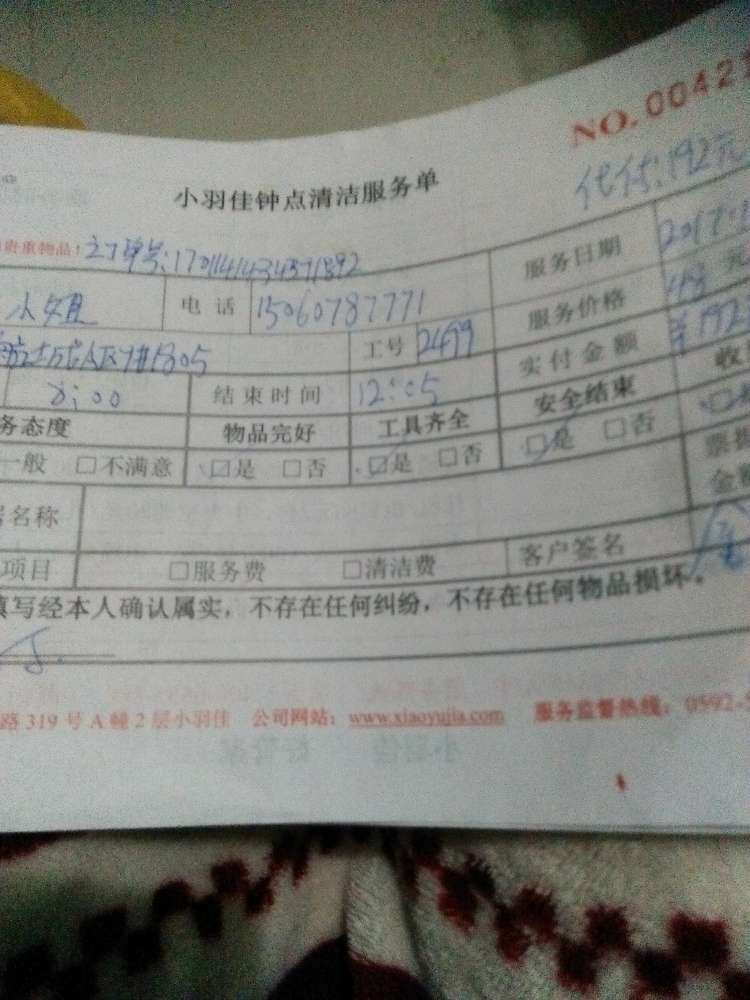 NO.0042
代付:192元
小羽佳钟点清洁服务单
贵重物品! 订单号:17011414434571892
小姐 电话 15060787771 服务日期 2017.
1#1805 工号 2499 服务价格 48元
8:00 结束时间 12:05 实付金额 ¥192
务态度 物品完好 工具齐全 安全结束 收
一般 □不满意 ☑是 □否 ☑是 □否 ☑是 □否
名称 票据
金额
项目 □服务费 □清洁费 客户签名
填写经本人确认属实，不存在任何纠纷，不存在任何物品损坏。
路319号A幢2层小羽佳 公司网站：www.xiaoyujia.com 服务监督热线：0592-